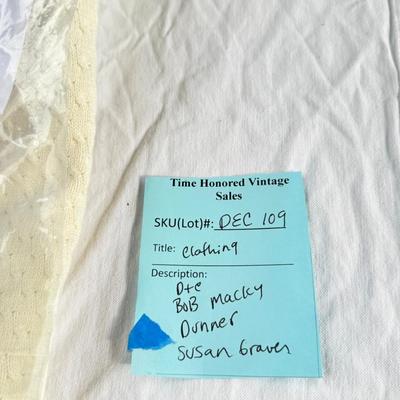 Time Honored Vintage
Sales
SKU(Lot)#: DEC 109
Title: Clothing
Description:
D+e
BoB Macky
Dunner
Susan Graver